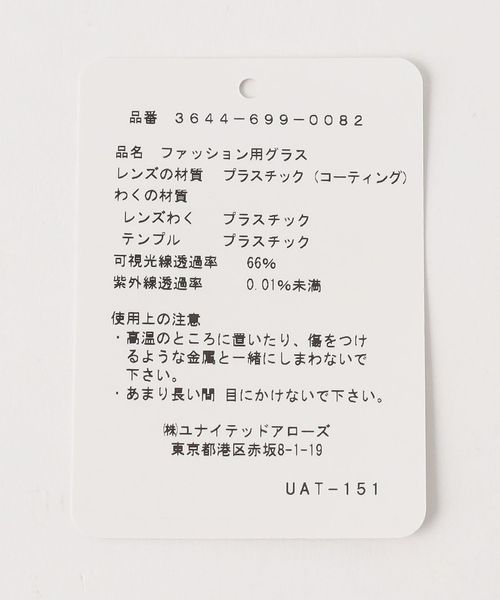 品番 3644-699-0082
品名 ファッション用グラス
レンズの材質 プラスチック (コーティング)
わくの材質
レンズわく プラスチック
テンプル プラスチック
可視光線透過率 66%
紫外線透過率 0.01%未満
使用上の注意
・高温のところに置いたり、傷をつけ
るような金属と一緒にしまわないで
下さい。
・あまり長い間 目にかけないで下さい。
㈱ユナイテッドアローズ
東京都港区赤坂8-1-19
UAT-151